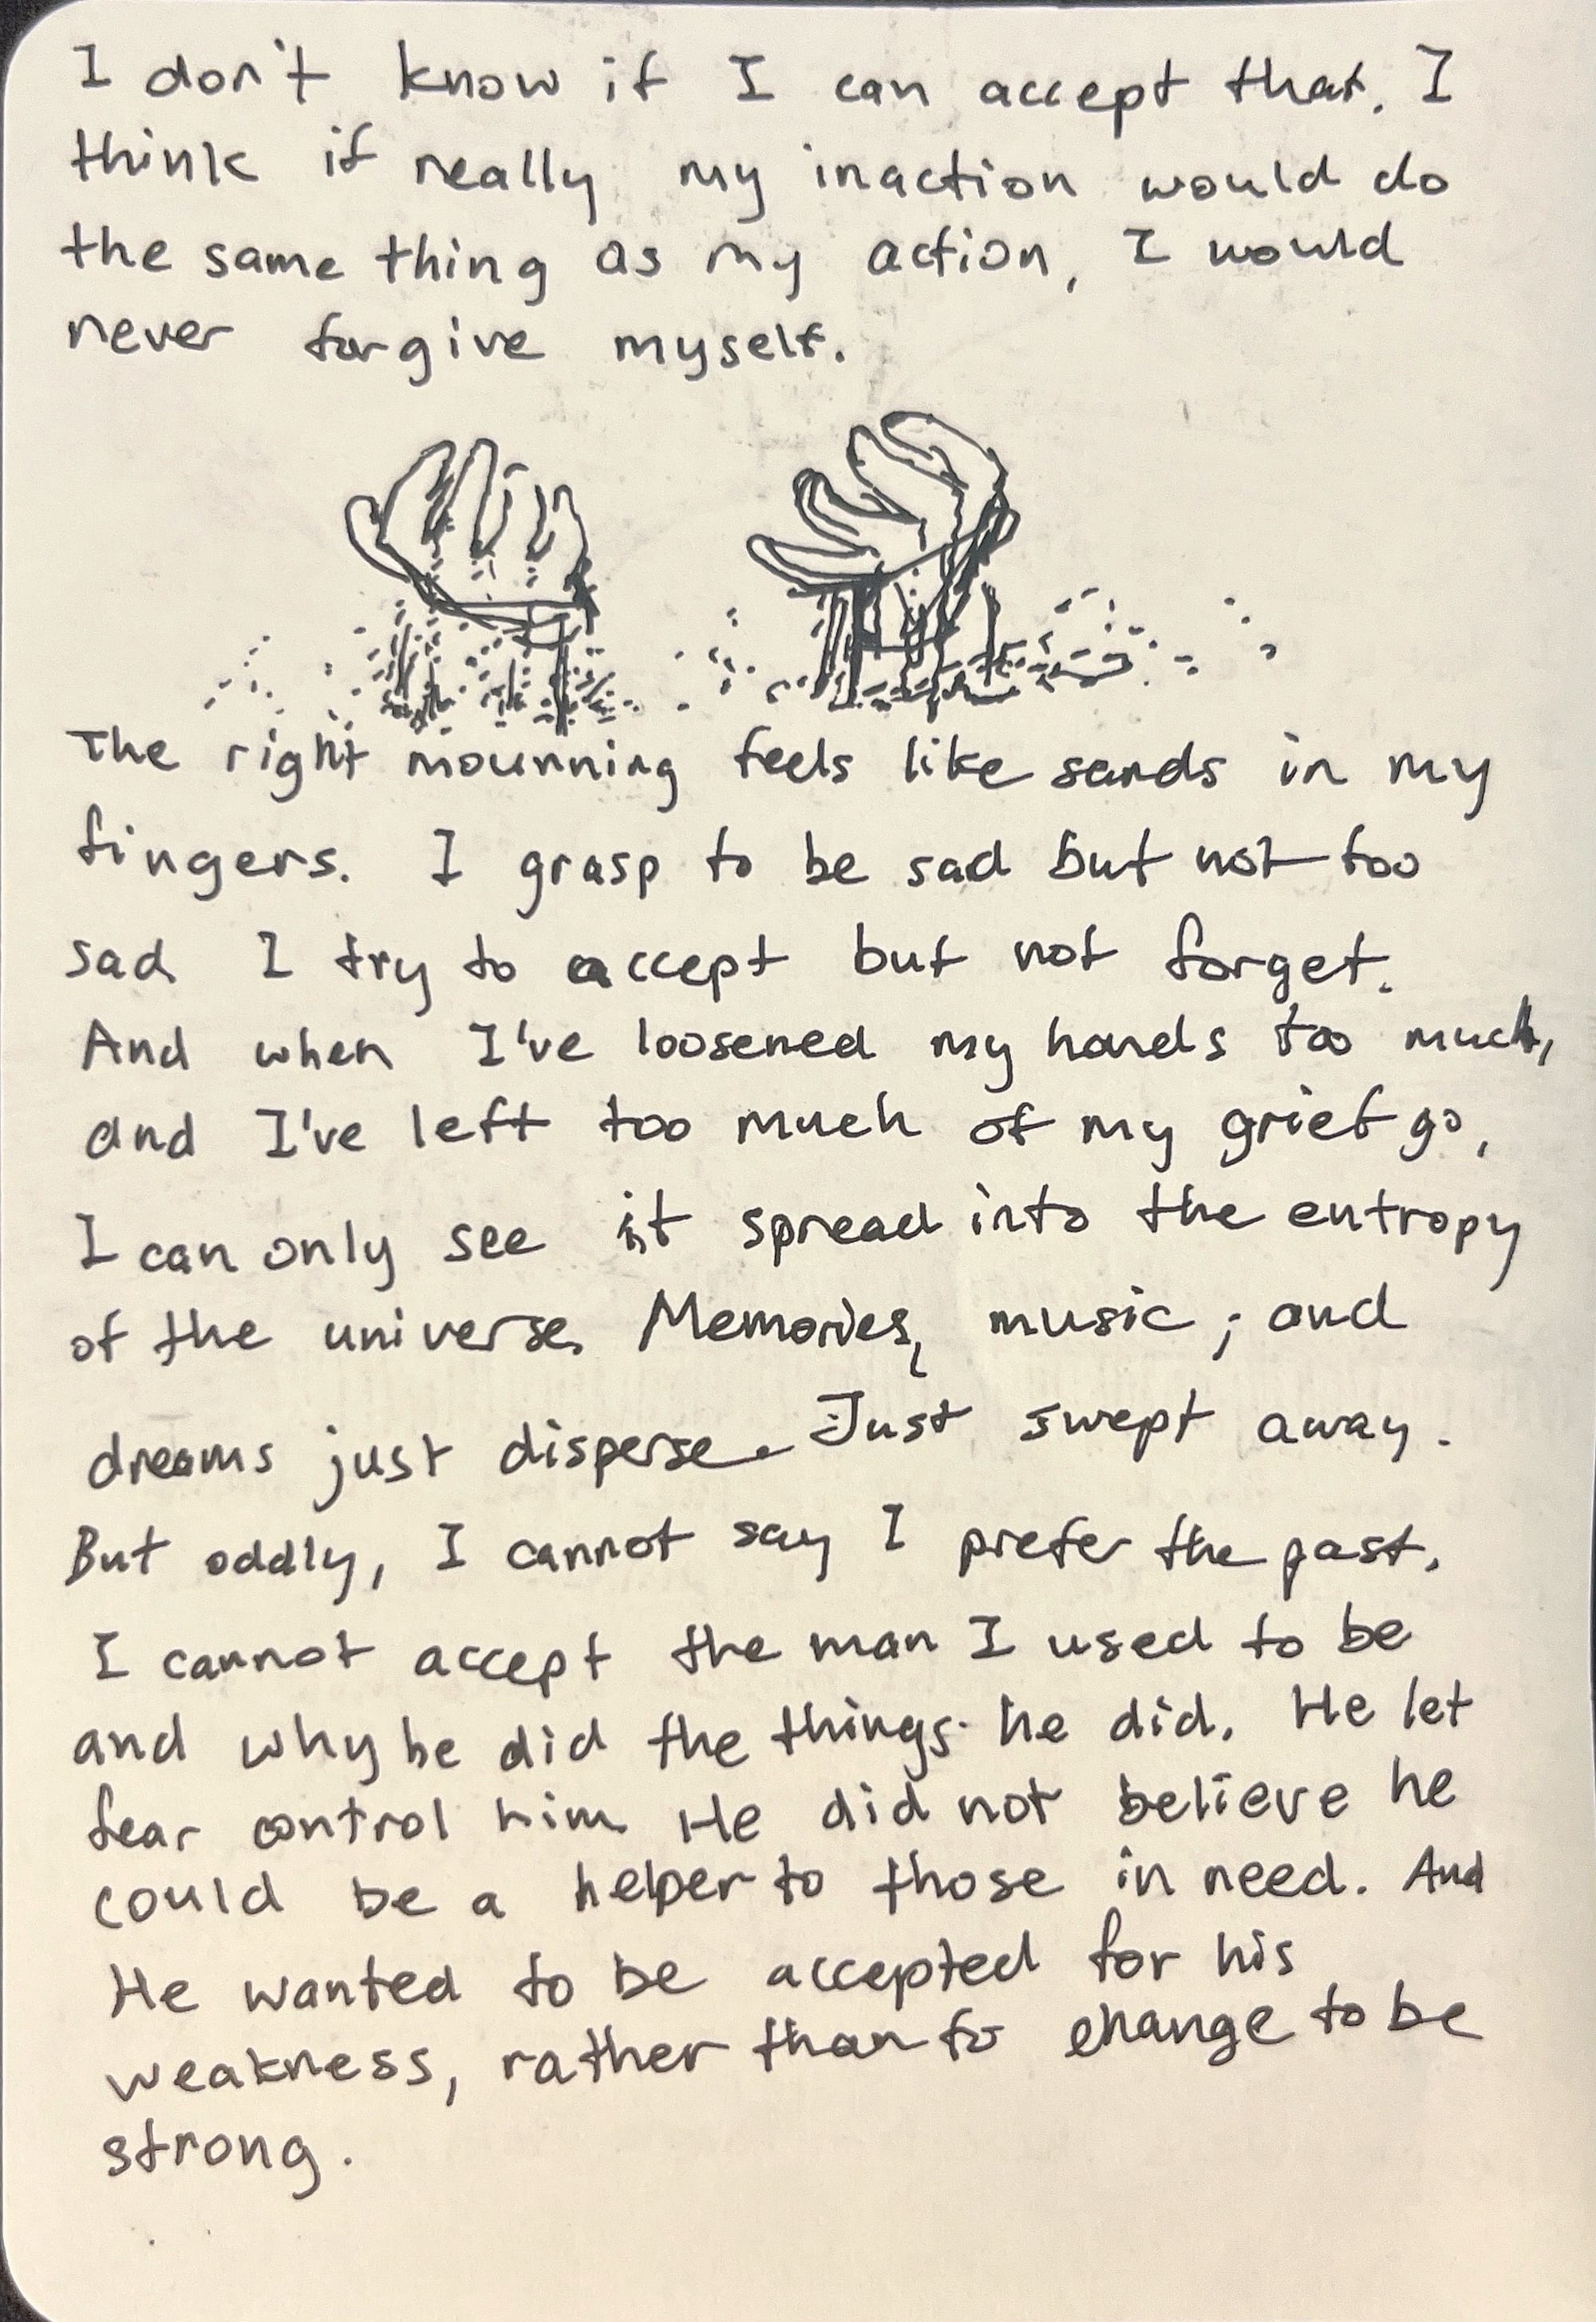 I don't know if I can accept that. I
think if really my inaction would do
the same thing as my action, I would
never forgive myself.
The right mournning feels like sands in my
fingers. I grasp to be sad but not too
sad I try to accept but not forget.
And when I've loosened my hands too much,
and I've left too much of my grief go,
I can only see it spread into the entropy
of the universe. Memories, music, and
dreams just disperse. Just swept away.
But oddly, I cannot say I prefer the past.
I cannot accept the man I used to be
and why he did the things he did. He let
fear control him. He did not believe he
could be a helper to those in need. And
He wanted to be accepted for his
weakness, rather than to change to be
strong.